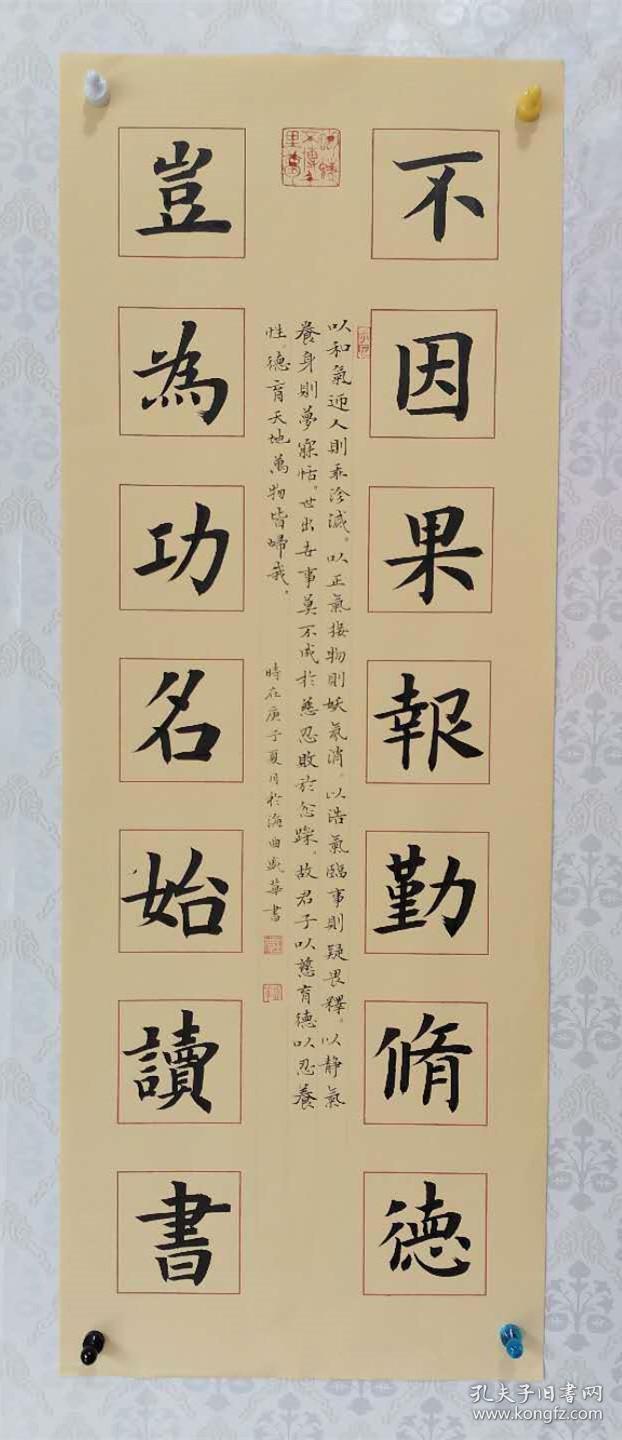 不因果報勤脩德
豈為功名始讀書
以和氣迎人則乖沴滅。以正氣接物則妖氣消。以浩氣臨事則疑畏釋。以靜氣
養身則夢寐恬。世出世事莫不成於慈忍敗於忿躁。故君子以慈育德以忍養
性。德育天地萬物皆歸我。
時在庚子夏月於海曲盛華書
孔夫子旧書网
www.kongfz.com